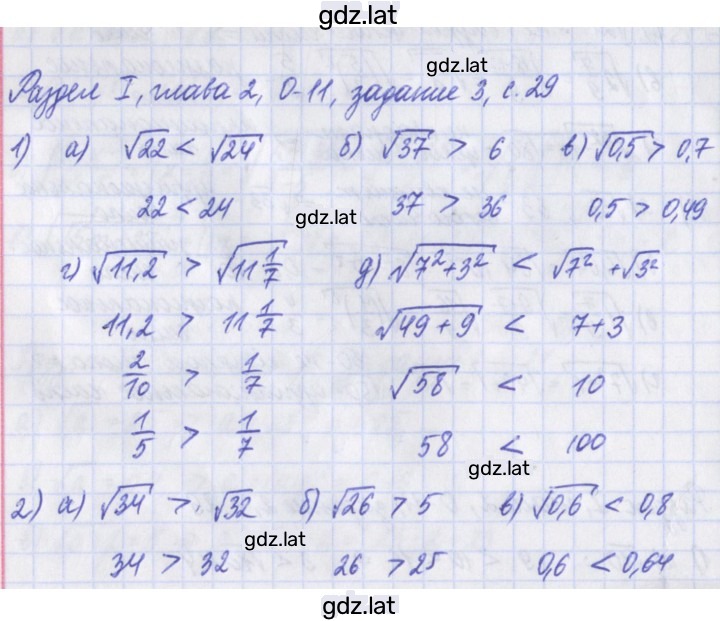 gdz.lat
gdz.lat
Раздел I, глава 2, О-11, задание 3, с. 29
1) а) √22 < √24 б) √37 > 6 в) √0,5 > 0,7
22 < 24 37 > 36 0,5 > 0,49
gdz.lat
г) √11,2 > √11 1/7 д) √7²+3² < √7² + √3²
11,2 > 11 1/7 √49+9 < 7+3
2/10 > 1/7 √58 < 10
1/5 > 1/7 58 < 100
gdz.lat
2) а) √34 > √32 б) √26 > 5 в) √0,6 < 0,8
gdz.lat
34 > 32 26 > 25 0,6 < 0,64
gdz.lat